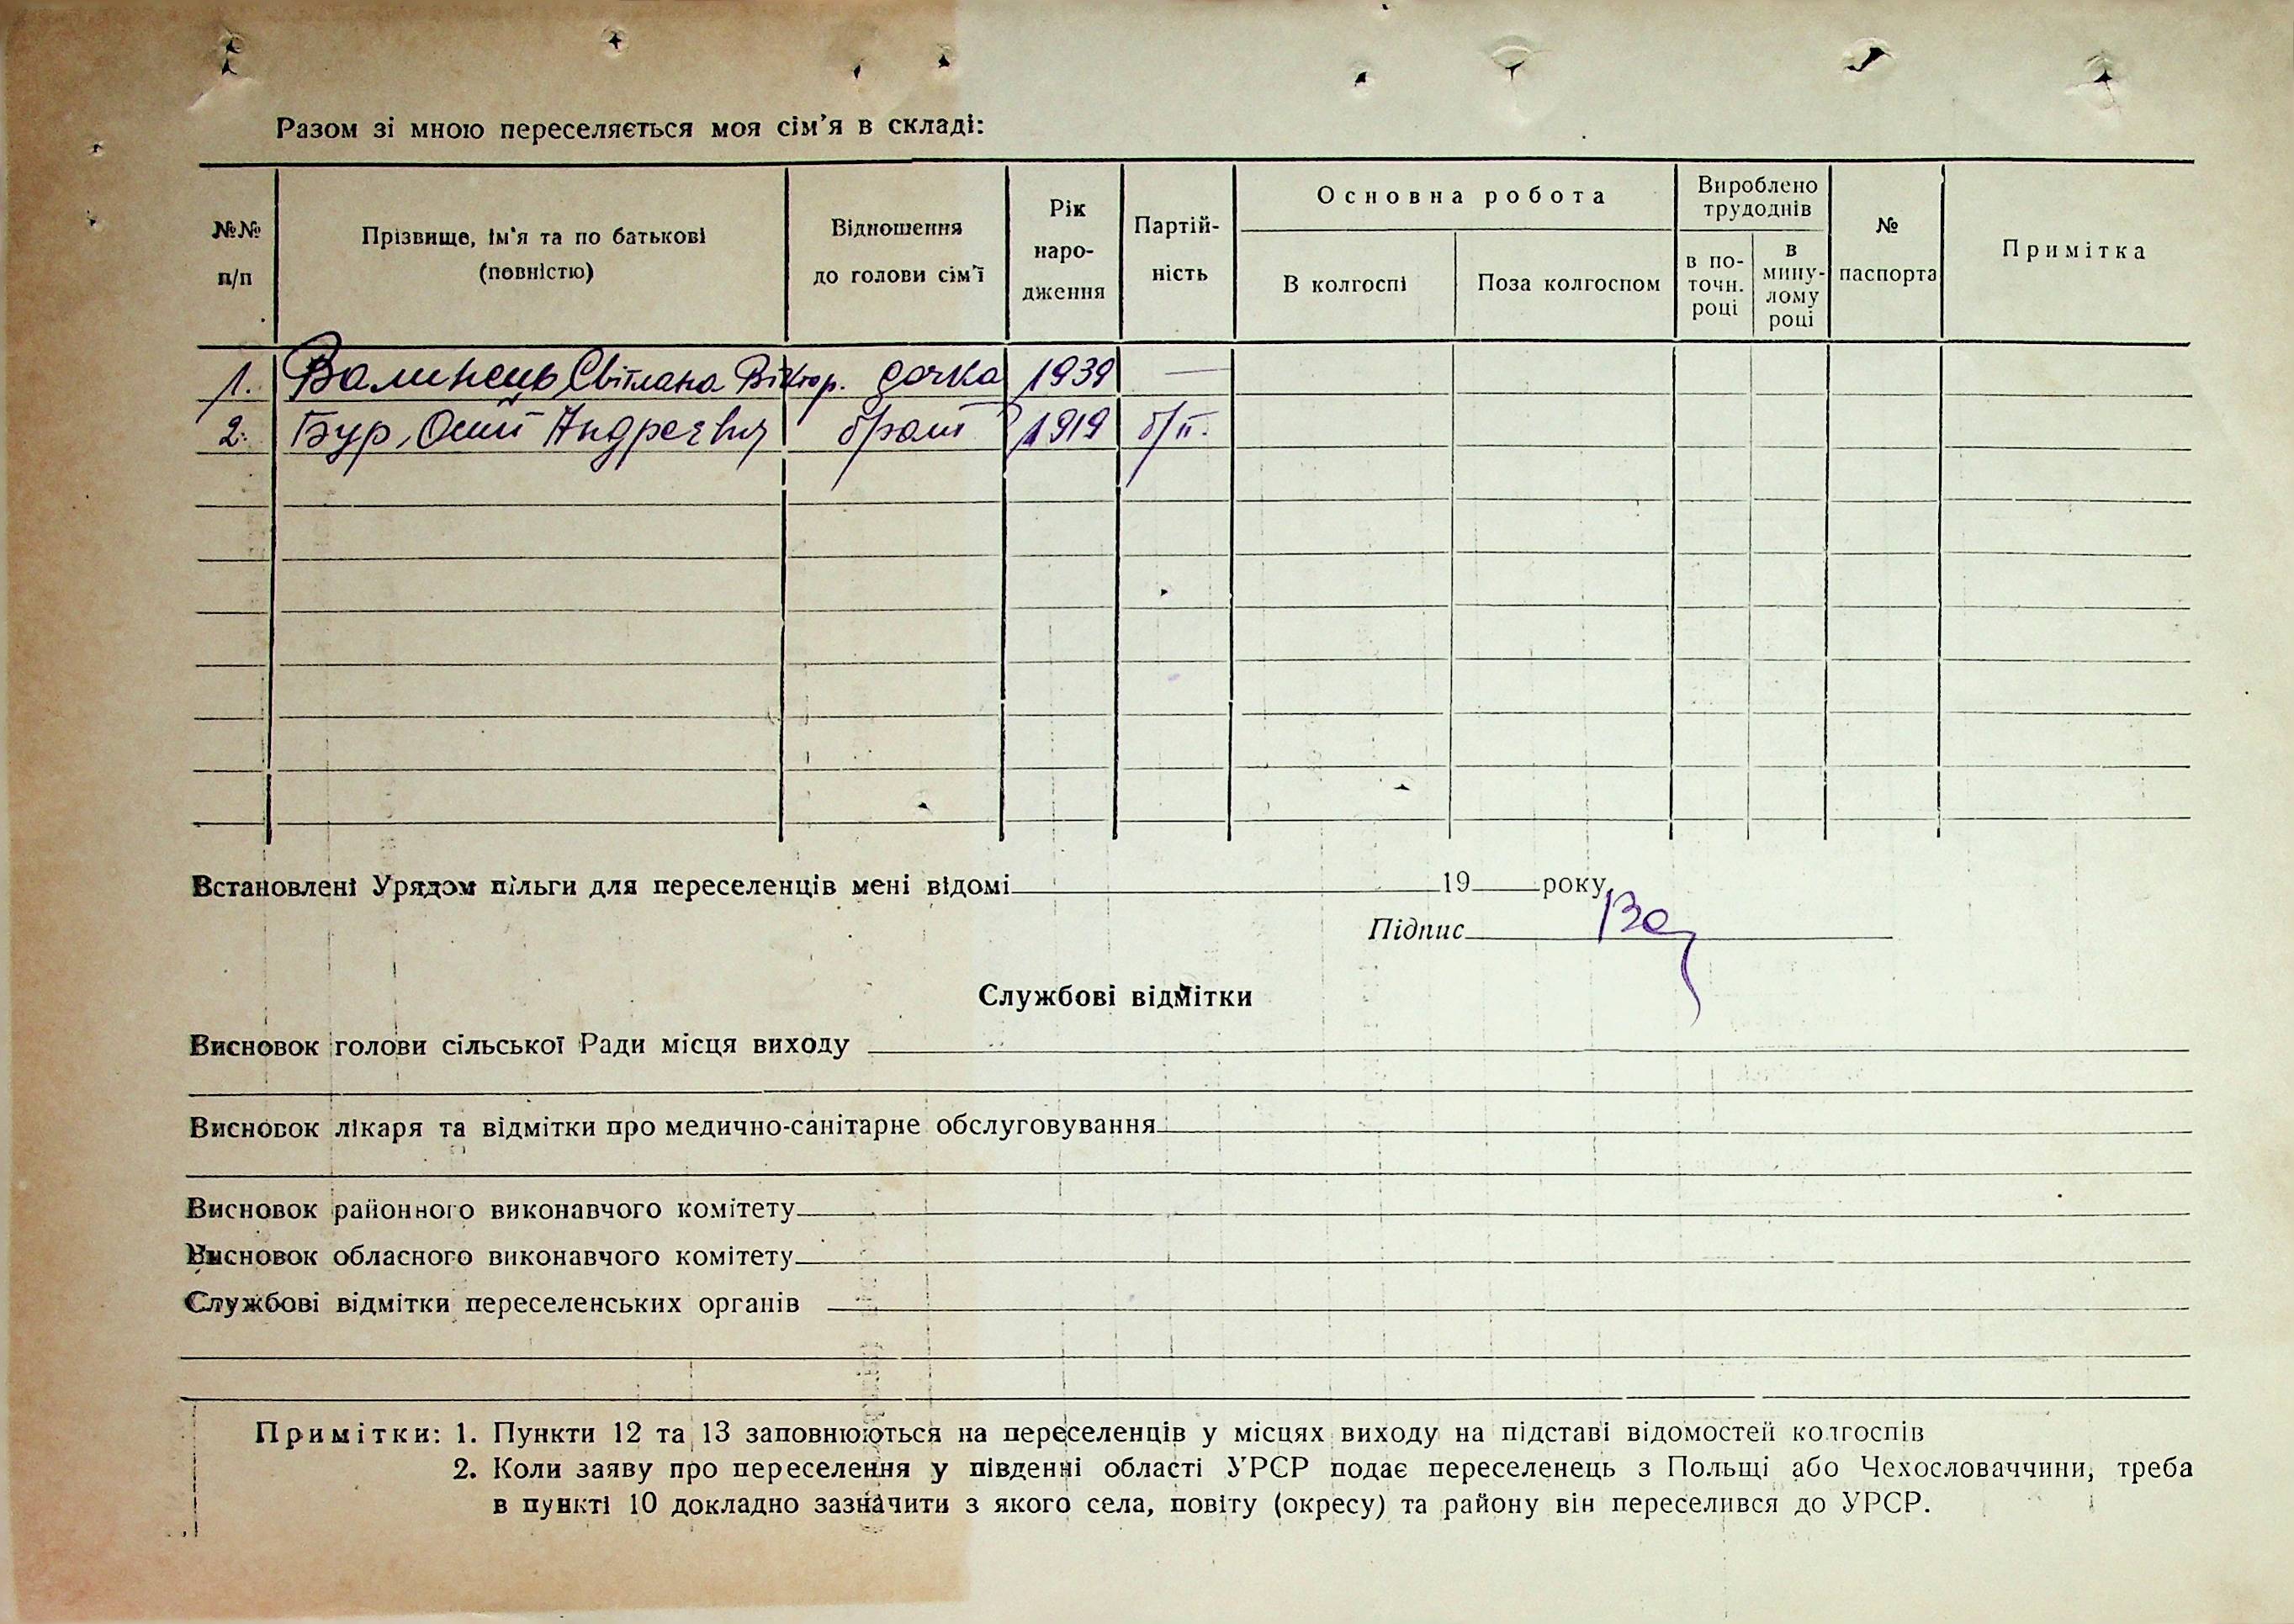 Разом зі мною переселяється моя сім'я в складі:
№№ п/п
Прізвище, ім'я та по батькові (повністю)
Відношення до голови сім'ї
Рік народження
Партійність
Основна робота
В колгоспі
Поза колгоспом
Вироблено трудоднів
в поточн. році
в минулому році
№ паспорта
Примітка
1. Валинець Світлана Віктор. дочка 1939 —
2. Бур, Осип Андреевич брат 1919 б/п.
Встановлені Урядом пільги для переселенців мені відомі 19 року
Підпис
Службові відмітки
Висновок голови сільської Ради місця виходу
Висновок лікаря та відмітки про медично-санітарне обслуговування
Висновок районного виконавчого комітету
Висновок обласного виконавчого комітету
Службові відмітки переселенських органів
Примітки: 1. Пункти 12 та 13 заповнюються на переселенців у місцях виходу на підставі відомостей колгоспів
2. Коли заяву про переселення у південні області УРСР подає переселенець з Польщі або Чехословаччини, треба
в пункті 10 докладно зазначити з якого села, повіту (окресу) та району він переселився до УРСР.